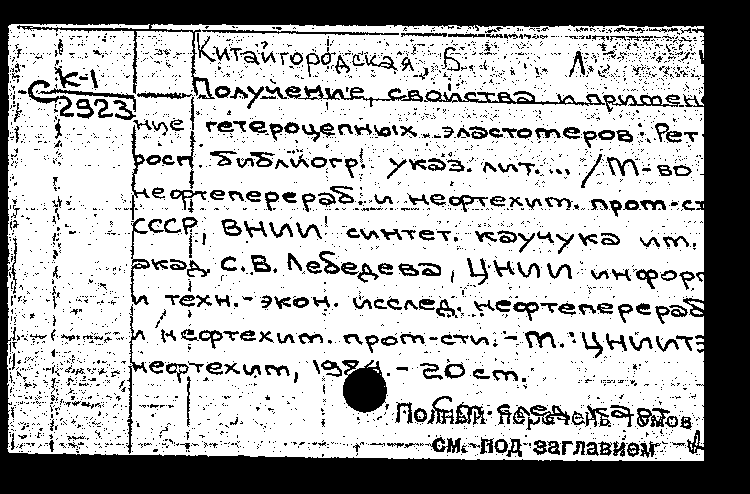 Китайгородская, Б. Л.
С К-1
2923
Получение, свойства и примене
ние гетероцепных эластомеров: Рет-
росп. библиогр. указ. лит... / М-во
нефтеперераб. и нефтехим. пром-ст
СССР, ВНИИ синтет. каучука им.
акад. С.В. Лебедева, ЦНИИ информ
и техн.-экон. исслед. нефтеперераб
и нефтехим. пром-сти. - М.: ЦНИИТЭ
нефтехим, 1984. - 20 см.
См. след. карт.
Полный перечень томов
см. под заглавием